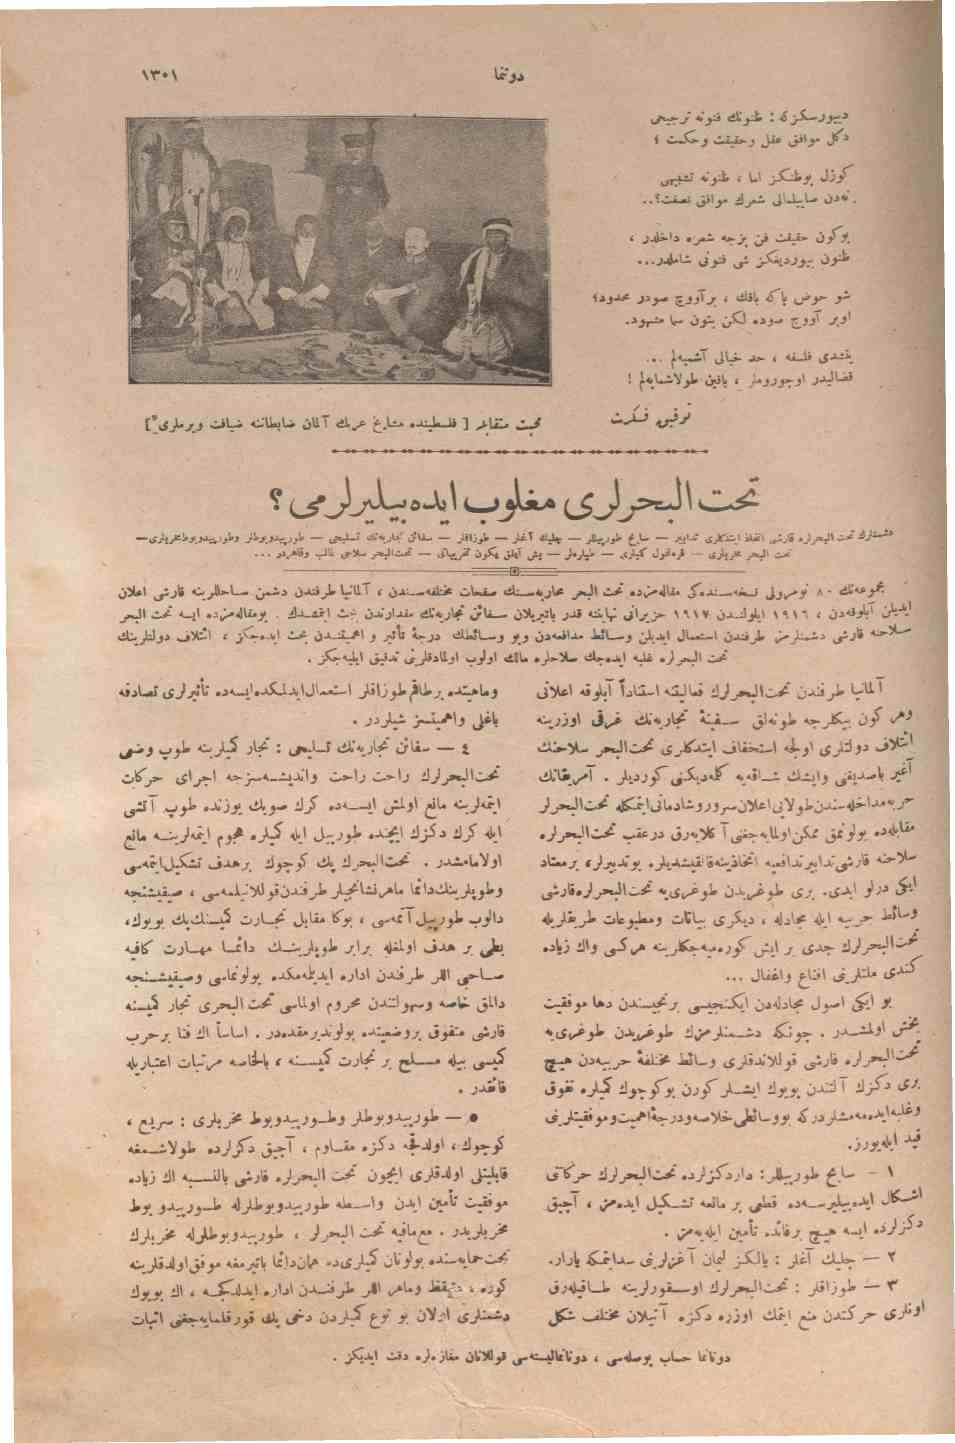 دوننما
١٣٠١
دییورسكزكه : ظنونك فنونه ترجیحی
دكل موافق عقل وحقیقت وحكمت ؛
كوزل بوظنكز اما ، ظنونه تشبیهی
نه‌دن صاییلمالی شعرك موافق نصفت؟..
بوكون حقیقت فن بزجه شعره داخلدر ،
ظنون بیوردیغكز شی فنونی شاملدر...
شو حوض پاكه باقك ، برآووچ صودر محدود؛
اوبر آووچ صوده لكن بتون سما مشهود.
یتشدی فلسفه ، حد خیالی آشمیه‌لم ...
فضالیدر اوچوروملر ، یاقین طولاشمایه‌لم !
توفیق فكرت
محبت متقابله [ فلسطینده مشایخ عربك آلمان ضابطاننه ضیافت ویرملری ]
تحت البحرلری مغلوب ایده‌بیلیرلرمی ؟
دشمنلرك تحت البحرلره قارشی اتخاذ ایتدكلری تدابیر — سابح طورپیللر — چلیك آغلر — طوزاقلر — سفائن تجاریه‌نك تسلیحی — طورپیدوبوطلر وطورپیدوبوط مخربلری—
تحت البحر مخربلری — قره‌غول كمیلری — طیاره‌لر — بش آیلق یكون تخریبات — تحت‌البحر سلاحی غالب وقاهردر ...
مجموعه‌نك ٨٠ نومرولی نسخه‌سنده‌كی مقاله‌مزده تحت البحر محاربه‌سنك صفحات مختلفه‌سندن ، آلمانیا طرفندن دشمن ساحللرینه قارشی اعلان
ایدیلن آبلوقه‌دن ، ١٩١٦ ایلولندن ١٩١٧ حزیرانی نهایتنه قدر باتیریلان سفائن تجاریه‌نك مقدارندن بحث ایتمشدك . بومقاله‌مزده ایسه تحت البحر
سلاحنه قارشی دشمنلرمز طرفندن استعمال ایدیلن وسائط مدافعه‌دن وبو وسائطك درجۀ تأثیر و اهمیتندن بحث ایده‌جكز ، ائتلاف دولتلرینك
تحت البحرلره غلبه ایده‌جك سلاحلره مالك اولوب اولمادقلرینی تدقیق ایلیه‌جكز .
آلمانیا طرفندن تحت‌البحرلرك فعالیتنه استناداً آبلوقه اعلانی
وهر كون بیكلرجه طونه‌لق سفینۀ تجاریه‌نك غرقی اوزرینه
ائتلاف دولتلری اولجه استخفاف ایتدكلری تحت‌البحر سلاحنك
آغیر باصدیغنی وایشك شقایه كلمه‌دیكنی كوردیلر . آمریقانك
حربه مداخله‌سندن طولایی اعلان سرور وشادمانی ایتمكله تحت‌البحرلر
مقابله‌ده بولونمق ممكن اولمایه‌جغنی آكلایه‌رق درعقب تحت‌البحرلره
سلاحنه قارشی تدابیر تدافعیه اتخاذینه قالقیشدیلر. بو تدبیرلر، برمعتاد
ایكی درلو ایدی. بری طوغریدن طوغری‌یه تحت‌البحرلره قارشی
وسائط حربیه ایله مجادله ، دیكری بیانات ومطبوعات طریقلریله
تحت‌البحرلرك جدی بر ایش كوره‌میه‌جكلرینه هركسی واك زیاده
كندی ملتلرینی اقناع واغفال ...
بو ایكی اصول مجادله‌دن ایكنجیسی برنجیسندن دها موفقیت
بخش اولمشدر . چونكه دشمنلرمزك طوغریدن طوغری‌یه
تحت‌البحرلره قارشی قوللاندقلری وسائط مختلفۀ حربیه‌دن هیچ
بری دكزك آلتندن بویوك ایشلر كورن بوكوچوك كمیلره تفوق
وغلبه ایده‌مه‌مشلردركه بووسائطی خلاصه ودرجۀ اهمیت وموفقیتلرینی
قید ایله‌یورز.
١ – سابح طورپیللر : داردكزلرده تحت‌البحرلرك حركاتنی
اشكال ایده‌بیلیرسه‌ده قطعی بر مانعه تشكیل ایده‌مز ، آچیق
دكزلرده ایسه هیچ برفائده تأمین ایله‌یه‌مز .
٢ — چلیك آغلر : یالكز لیمان آغزلرینی سدایتمكه یارار.
٣ — طوزاقلر : تحت‌البحرلرك اوسقورلرینه طاقیله‌رق
اونلری حركتدن منع ایتمك اوزره دكزه آتیلان مختلف شكل
وماهیتده برطاقم طوزاقلر استعمال ایدلمكده‌ایسه‌ده تأثیرلری تصادفه
باغلی واهمیتسز شیلردر .
٤ — سفائن تجاریه‌نك تسلیحی : تجار كمیلرینه طوپ وضعی
تحت‌البحرلرك راحت راحت واندیشه‌سزجه اجرای حركات
ایتمه‌لرینه مانع اولمش ایسه‌ده كرك صویك یوزنده طوپ آتشی
ایله كرك دكزك ایچنده طورپیل ایله كمیلره هجوم ایتمه‌لرینه مانع
اولامامشدر . تحت‌البحرك پك كوچوك برهدف تشكیل ایتمه‌سی
وطوپلرینك‌دائما ماهر نشانجیلر طرفندن قوللانیلمه‌سی ، صیقیشنجه
دالوب طورپیل آتمه‌سی ، بوكا مقابل تجارت كمیسنك‌پك بویوك،
بطی بر هدف اولمغله برابر طوپلرینك دائما مهارت كافیه
صاحبی اللر طرفندن اداره ایدیله‌مكده بولونماسی وصیقیشنجه
دالمق خاصه وسهولتندن محروم اولماسی تحت البحری تجار كمیسنه
قارشی متفوق بروضعیتده بولوندیرمقده‌در . اساساً اك فنا برحرب
كمیسی بیله مسلح بر تجارت كمیسنه ، بالخاصه مرتبات اعتباریله
فائقدر .
٥ — طورپیدوبوطلر وطورپیدوبوط مخربلری : سریع ،
كوچوك ، اولدقجه دكزه مقاوم ، آچیق دكزلرده طولاشمغه
قابلیتلی اولدقلری ایچون تحت البحرلره قارشی بالنسبه اك زیاده
موفقیت تأمین ایدن واسطه طورپیدوبوطلرله طورپیدو بوط
مخربلریدر . مع‌مافیه تحت البحرلر ، طورپیدوبوطلرله مخربلرك
تحت‌حمایه‌سنده بولونان كمیلری‌ده همان‌دائما باتیرمغه موفق اولدقلرینه
كوره ، متیقظ وماهر اللر طرفندن اداره ایدلدكجه ، اك بویوك
دشمنلری اولان بو نوع كمیلردن دخی پك قورقلمایه‌جغنی اثبات
دونانما حساب بوصله‌سی ، دونانماالبسه‌سی قوللانان مغازه‌لره دقت ایدیكز .